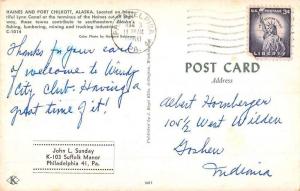 HAINES AND PORT CHILKOTT, ALASKA. Located on
ful Lynn Canal at the terminus of the Haines cut-off
way, these towns contribute to southeastern Alaska's
fishing, lumbering, mining and trucking
C-1014
Thanks for your card
of welcome to Windy
City Club. Having a
great time of it!
John L. Sunday
K-103 Suffolk Manor
Philadelphia 41, Pa.
PHILADELPHIA
PA.
U.S. POSTAGE
3¢
LIBERTY
POST CARD
Address
Albert Hornberger
105½ West Wilden
Goshen
Indiana
K